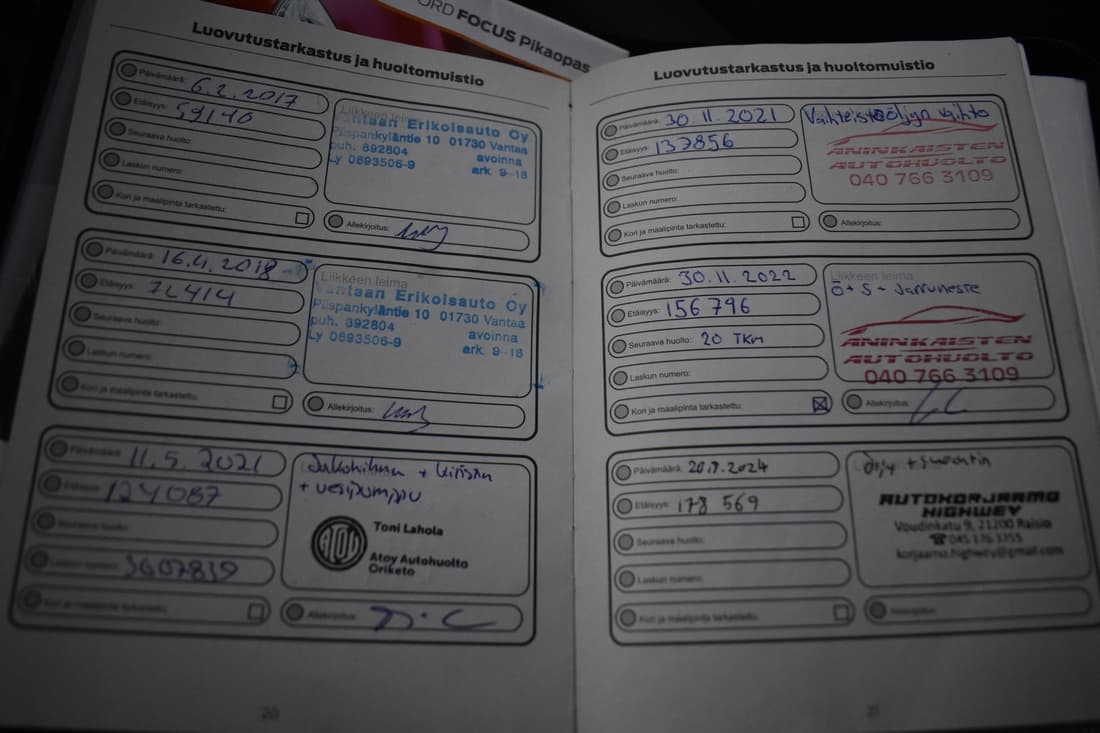 ORD FOCUS Pikaopas
Luovutustarkastus ja huoltomuistio
Päivämäärä: 6.2.2017
Etäisyys: 59140
Seuraava huolto:
Laskun numero:
Kori ja maalipinta tarkastettu:
Liikkeen leima
Vantaan Erikoisauto Oy
Piispankyläntie 10 01730 Vantaa
puh. 892804 avoinna
Ly 0693506-9 ark. 9-18
Allekirjoitus:
Päivämäärä: 16.4.2018
Etäisyys: 72414
Seuraava huolto:
Laskun numero:
Kori ja maalipinta tarkastettu:
Liikkeen leima
Vantaan Erikoisauto Oy
Piispankyläntie 10 01730 Vantaa
puh. 892804 avoinna
Ly 0693506-9 ark. 9-18
Allekirjoitus:
Päivämäärä: 11.5.2021
Etäisyys: 124087
Seuraava huolto:
Laskun numero: 3607839
Kori ja maalipinta tarkastettu:
Jakohihna + kiristin
+ vesipumppu
ATOY
Toni Lahola
Atoy Autohuolto
Oriketo
Allekirjoitus:
20
Luovutustarkastus ja huoltomuistio
Päivämäärä: 30.11.2021
Etäisyys: 137856
Seuraava huolto:
Laskun numero:
Kori ja maalipinta tarkastettu:
Vaihteistoöljyn vaihto
ANINKAISTEN
AUTOHUOLTO
040 766 3109
Allekirjoitus:
Päivämäärä: 30.11.2022
Etäisyys: 156796
Seuraava huolto: 20 TKm
Laskun numero:
Kori ja maalipinta tarkastettu:
Liikkeen leima
Ö + S + Jarruneste
ANINKAISTEN
AUTOHUOLTO
040 766 3109
Allekirjoitus:
Päivämäärä: 20.9.2024
Etäisyys: 178 569
Seuraava huolto:
Laskun numero:
Kori ja maalipinta tarkastettu:
Öljy + suodatin
AUTOKORJAAMO
HIGHWEY
Voudinkatu 9, 21200 Raisio
☎045 176 3755
korjaamo.highwey@gmail.com
Allekirjoitus:
21